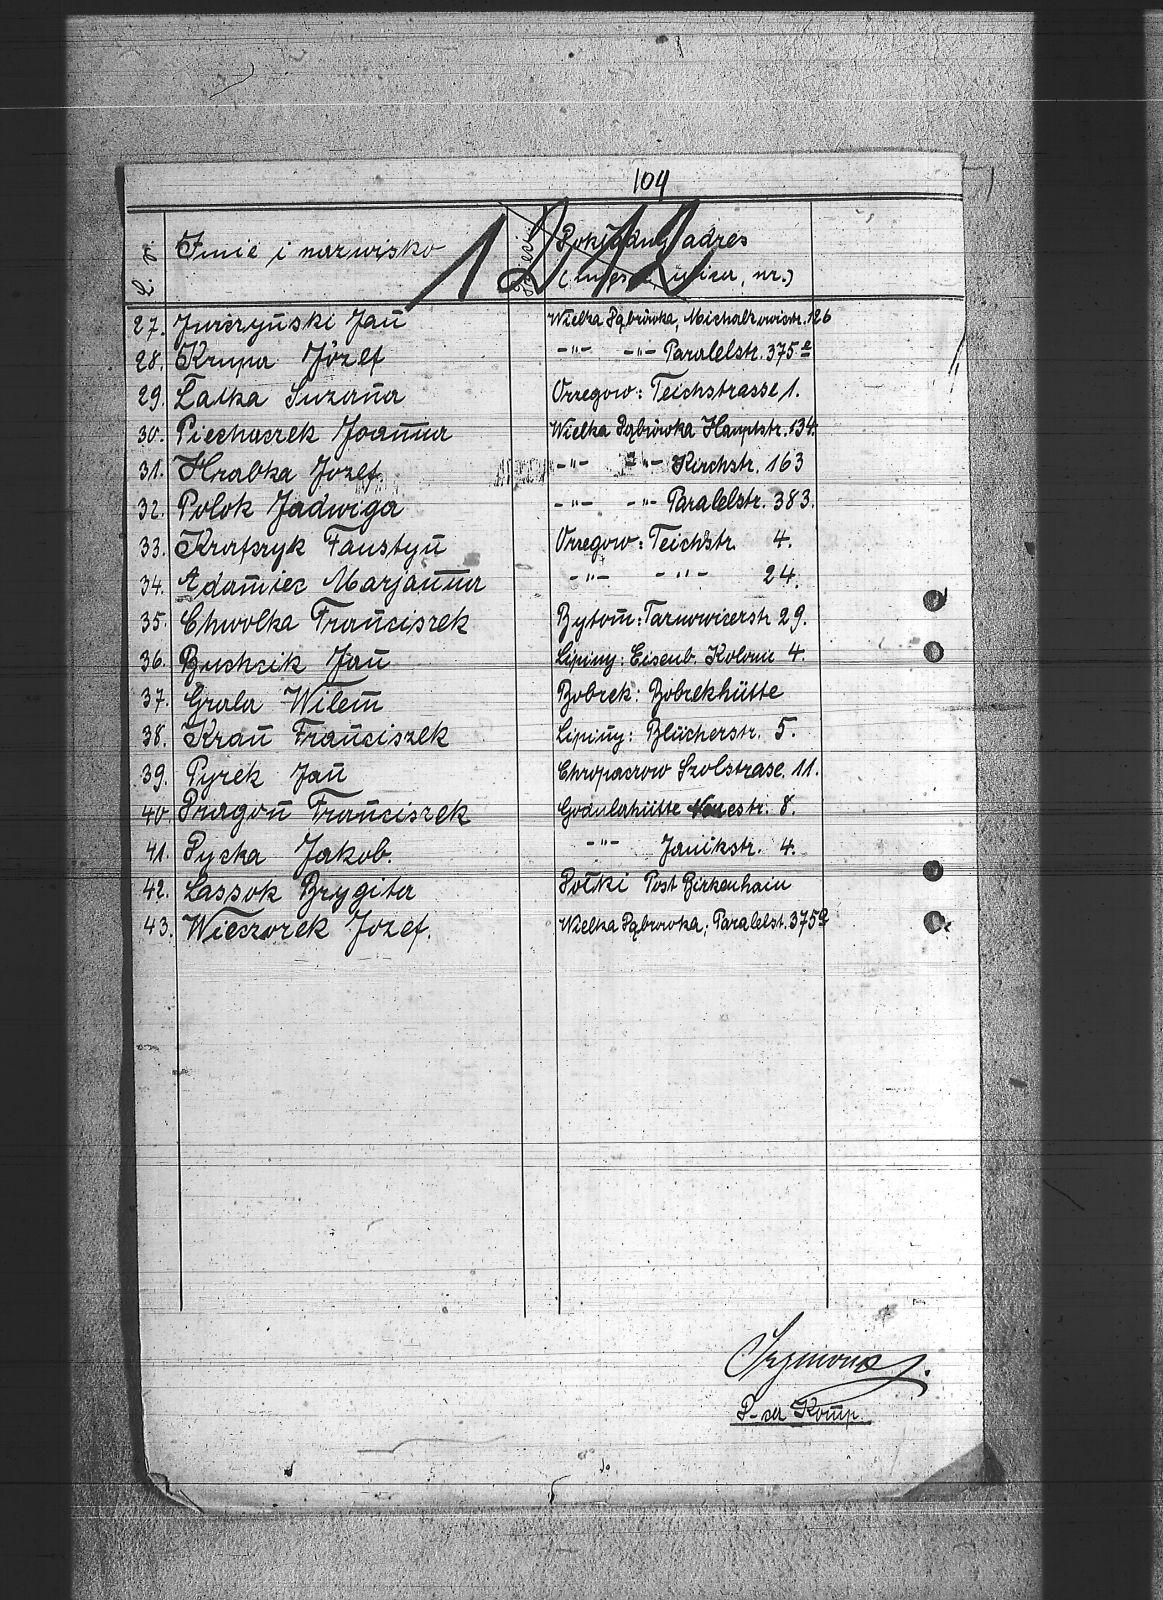 104
1212
L. p. Imie i nazwisko Dokładny adres
ulica, nr.)
27. Jurczyński Jan̄ Wielka Dąbrówka, Michalkowistr. 126
28. Krupa Józef -"- -"- Paralelstr. 375 a
29. Łatka Zuzan̄a Orzegow: Teichstrasse 1.
30. Piechaczek Joan̄na Wielka Dąbrówka Hauptstr. 134.
31. Hrabka Józef -"- -"- Kirchstr. 163
32. Polok Jadwiga -"- -"- Paralelstr. 383.
33. Faustyn̄ Orzegow: Teichstr. 4.
34. Adam̄iec Marjan̄na -"- -"- 24.
35. Chwolka Fran̄ciszek Bytom̄: Tarnowicerstr. 29.
36. Buchcik Jan̄ Lipiny: Eisenb. Kolonie 4.
37. Grala Wilem̄ Bobrek: Bobrekhütte
38. Kran̄ Fran̄ciszek Lipin̄y: Blücherstr. 5.
39. Pyrek Jan̄ Chropaczow Szolstrase. 11.
40. Dragon̄ Fran̄ciszek Godulahütte Neuestr. 8.
41. Pycka Jakob. -"- Janikstr. 4.
42. Lassok Brygita Dołki Post Birkenhain
43. Wieczorek Józef. Wielka Dąbrowka; Paralelst. 375a
D-ca Kom̄p.